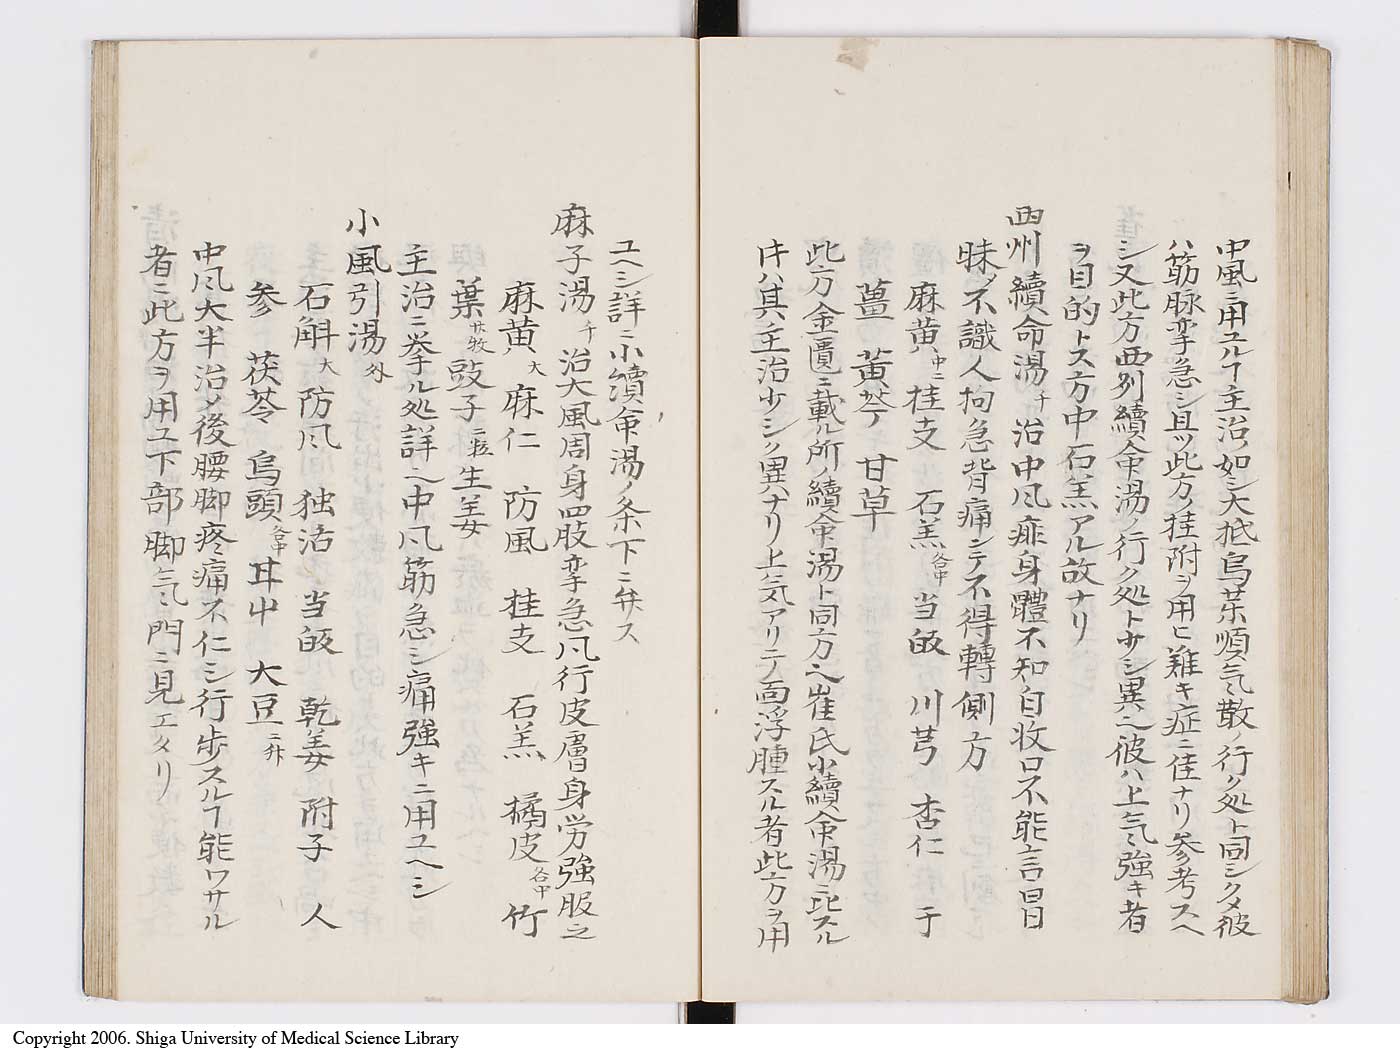 中風ニ用ユルヿ主治ノ如シ大抵烏茱順气散ノ行ク処ト同シクメ彼
ハ筋脉挛急シ且ツ此方ノ桂附ヲ用ヒ難キ症ニ佳ナリ参考スヘ
シ又此方西列續命湯ノ行ク処ト少シ異之彼ハ上气強キ者
ヲ目的トス方中石羔アル故ナリ
西州續命湯千治中风痱身體不知自收口不能言冒
昧不識人拘急背痛シテ不得轉側方
麻黄中二桂支石羔各中当皈川芎杏仁干
薑黄芩甘草
此方金匱ニ載ル所ノ續命湯ト同方之崔氏小續命湯ニ比スル
ℍハ其主治少シク異ハナリ上气アリテ面浮腫スル者此方ヲ用
ユヘシ詳ニ小續命湯ノ条下ニ弁ス
麻子湯千治大風周身四肢挛急凡行皮膚身労強服之
麻黄大麻仁防風桂支石羔橘皮各中竹
葉豉子生姜
主治ニ挙ル処詳之中风筋急シ痛強キニ用ユヘシ
小風引湯外
石斛大防风独活当皈乾姜附子人
参茯苓烏頭各中甘中大豆二升
中风大半治メ後腰脚疼痛不仁シ行歩スルヿ能ワサル
者ニ此方ヲ用ユ下部脚气門ニ見エタリ
Copyright 2006. Shiga University of Medical Science Library